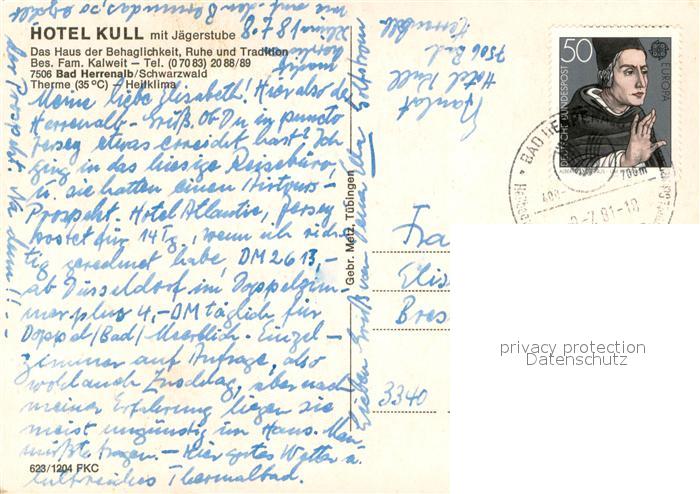 HOTEL KULL mit Jägerstube
Das Haus der Behaglichkeit, Ruhe und Tradition
Bes. Fam. Kalweit – Tel. (0 70 83) 20 88/89
7506 Bad Herrenalb/Schwarzwald
Therme (35 °C) / Heilklima
8.7.81
Meine liebe Elisabeth! Hier also der
Herrenalb-Gruß. Ob Du in puncto
Jersey etwas erreicht hast? Ich
ging in das hiesige Reisebüro,
u. sie hatten einen Airtours-
Prospekt. Hotel Atlantic, Jersey
kostet für 14 Tg, wenn ich rich-
tig gerechnet habe DM 2613,-
ab Düsseldorf im Doppelzim-
mer plus 4,- DM täglich für
Doppel/Bad/Meerblick. Einzel-
zimmer auf Anfrage, also
wohl auch Zuschlag, aber nach
meiner Erfahrung liegen sie
meist ungünstig im Haus. Man
müßte fragen. – Hier gutes Wetter u.
Thermalbad.
Lieben Gruß von
der Prospekt. Na denn!!
Hotel Kull
7506 Bad
Herrenalb
Gebr. Metz, Tübingen
623/1204 FKC
50
DEUTSCHE BUNDESPOST
EUROPA
BAD HERRENALB
700m
-7.81-18
3340
privacy protection
Datenschutz